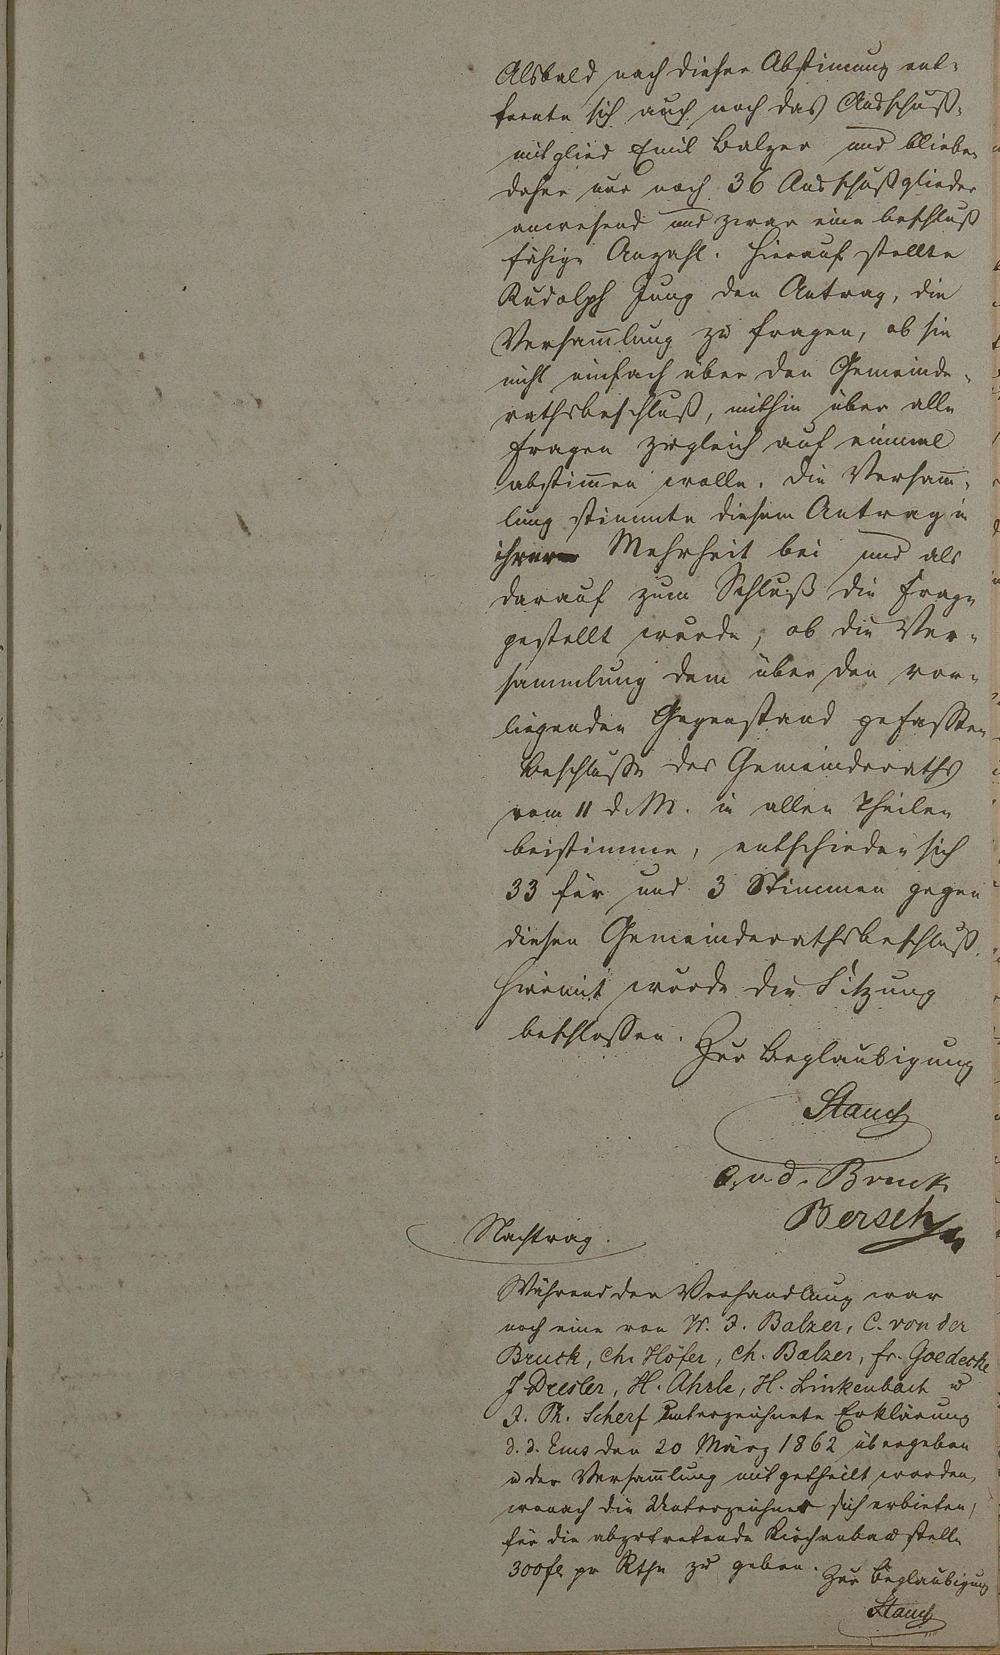 Alsbald nach dieser Abstimung ent-
fernte sich auch noch das Ausschuß-
mitglied Emil Balzer und blieben
daher nur noch 36 Ausschußglieder
anwesend und zwar eine beschluß
fähige Anzahl. Hierauf stellte
Rudolph Jung den Antrag, die
Versamlung zu fragen, ob sie
nicht einfach über den Gemeinde-
rathsbeschluß, mithin über alle
Fragen zugleich auf einmal
abstimen wolle. Die Versam-
lung stimmte diesem Antrag in
ihrer Mehrheit bei und als
darauf zum Schluß die Frage
gestellt wurde, ob die Ver-
sammlung dem über den vor-
liegenden Gegenstand gefaßten
Beschlusse des Gemeinderaths
vom 11 d. M. in allen Theilen
beistimme, entschieden sich
33 für und 3 Stimmen gegen
diesen Gemeinderathsbeschluß.
Hiermit wurde die Sitzung
beschlossen.
Zur Beglaubigung
Stauch
C. v. d. Bruck
Bersch
Nachtrag.
Während der Verhandlung war
noch eine von W. J. Balzer, C. von der
Bruck, Ch. Höfer, Ch. Balzer, fr. Goedecke
J Dresler, H. Ahrle, H. Linkenbach u
J. Ph. Scherf unterzeichnete Erklärung
d. d. Ems den 20 März 1862 übergeben
u der Versamlung mitgetheilt worden,
wonach die Unterzeichner sich erbieten,
für die abzutretende Kirchenbaustelle
300 fl pr Rthe zu geben.
Zur Beglaubigung
Stauch